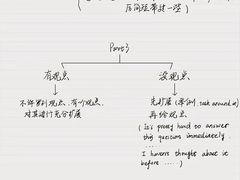 反问法带过一些)
Part3
有观点
没观点
不许罗列观点,有一个观点,
对其进行充分扩展
先扩展(举例, talk around it)
再给观点
( it's pretty hard to answer
this question immediately.
......
I haven't thought about it
before ......)